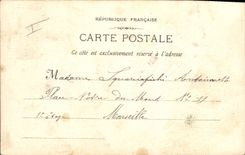 RÉPUBLIQUE FRANÇAISE
CARTE POSTALE
Ce côté est exclusivement réservé à l'adresse
Madame Squarciafichi Antoinette
Place Notre du Mont No
1er Etage Marseille